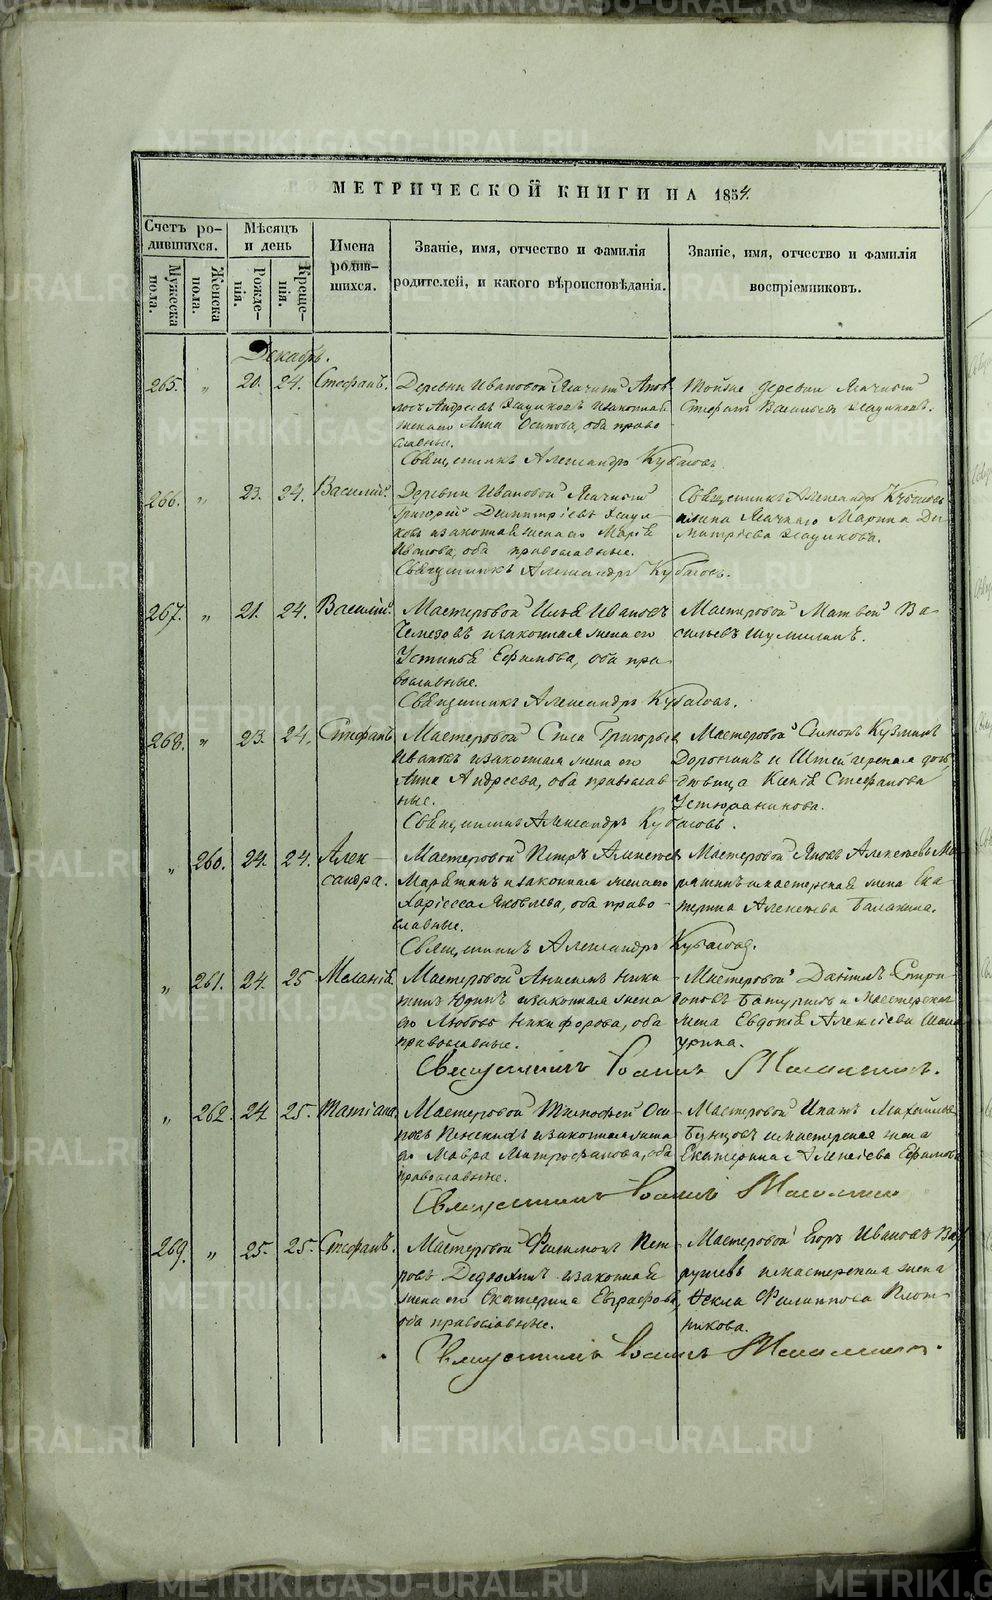 METRIKI.GASO-URAL.RU
МЕТРИЧЕСКОЙ КНИГИ НА 1854.
Счетъ родившихся.
Мужеска пола.
Женска пола.
Мѣсяцъ и день
Рожденія.
Крещенія.
Имена родившихся.
Званіе, имя, отчество и фамилія
родителей, и какого вѣроисповѣданія.
Званіе, имя, отчество и фамилія
воспріемниковъ.
Декабрь.
265. „ 20. 24. Стефанъ.
Деревни Ивановой
Андреевъ и законная
жена его Анна Осипова, оба право-
славные.
Священникъ Александръ
Тойже деревни
Стефанъ Васильевъ
266. „ 23. 24. Василій.
Деревни Ивановой
Григорій Димитріевъ
и законная жена его Марія
Иванова, оба православные.
Священникъ Александръ
Священникъ Александръ
Марина Ди-
митріева
267. „ 21. 24. Василій.
Мастеровой Илья Ивановъ
Чемезовъ и законная жена его
Устинья Ефимова, оба пра-
вославные.
Священникъ Александръ
Мастеровой Матвей Ва-
сильевъ Шумилинъ.
268. „ 23. 24. Стефанъ
Мастеровой Сила Григорьевъ
Ивановъ и законная жена его
Анна Андреева, оба православ-
ные.
Священникъ Александръ
Мастеровой Симонъ Кузминъ
Доронинъ и Штейгерская
Ксенія Стефанова
Устюжанинова.
„ 260. 24. 24. Алек-
сандра.
Мастеровой Петръ Алексѣевъ
и законная жена его
Харіесса Яковлева, оба право-
славные.
Священникъ Александръ
Мастеровой Яковъ Алексѣевъ
и мастерская жена Ека-
терина Алексѣева Балакина.
„ 261. 24. 25 Меланія
Мастеровой Анисимъ Ники-
тинъ Юдинъ и законная жена
его Любовь Никифорова, оба
православные.
Мастеровой Даніилъ Спири-
доновъ Батуринъ и мастерская
жена Евдокія Алексѣева
Священникъ Іоаннъ
„ 262. 24 25. Татіана.
Мастеровой Тимофей Оси-
повъ и законная жена
его Мавра Митрофанова, оба
православные.
Мастеровой Ипатъ Михайловъ
Бунцовъ и мастерская жена
Екатерина Алексѣева Ефимова
Священникъ Іоаннъ
269. „ 25. 25. Стефанъ.
Мастеровой Филимонъ Пет-
ровъ Дедюхинъ и законная
жена его Екатерина Евграфова,
оба православные.
Мастеровой Егоръ Ивановъ
и мастерская жена
Фекла Филиппова Плот-
никова.
Священникъ Іоаннъ